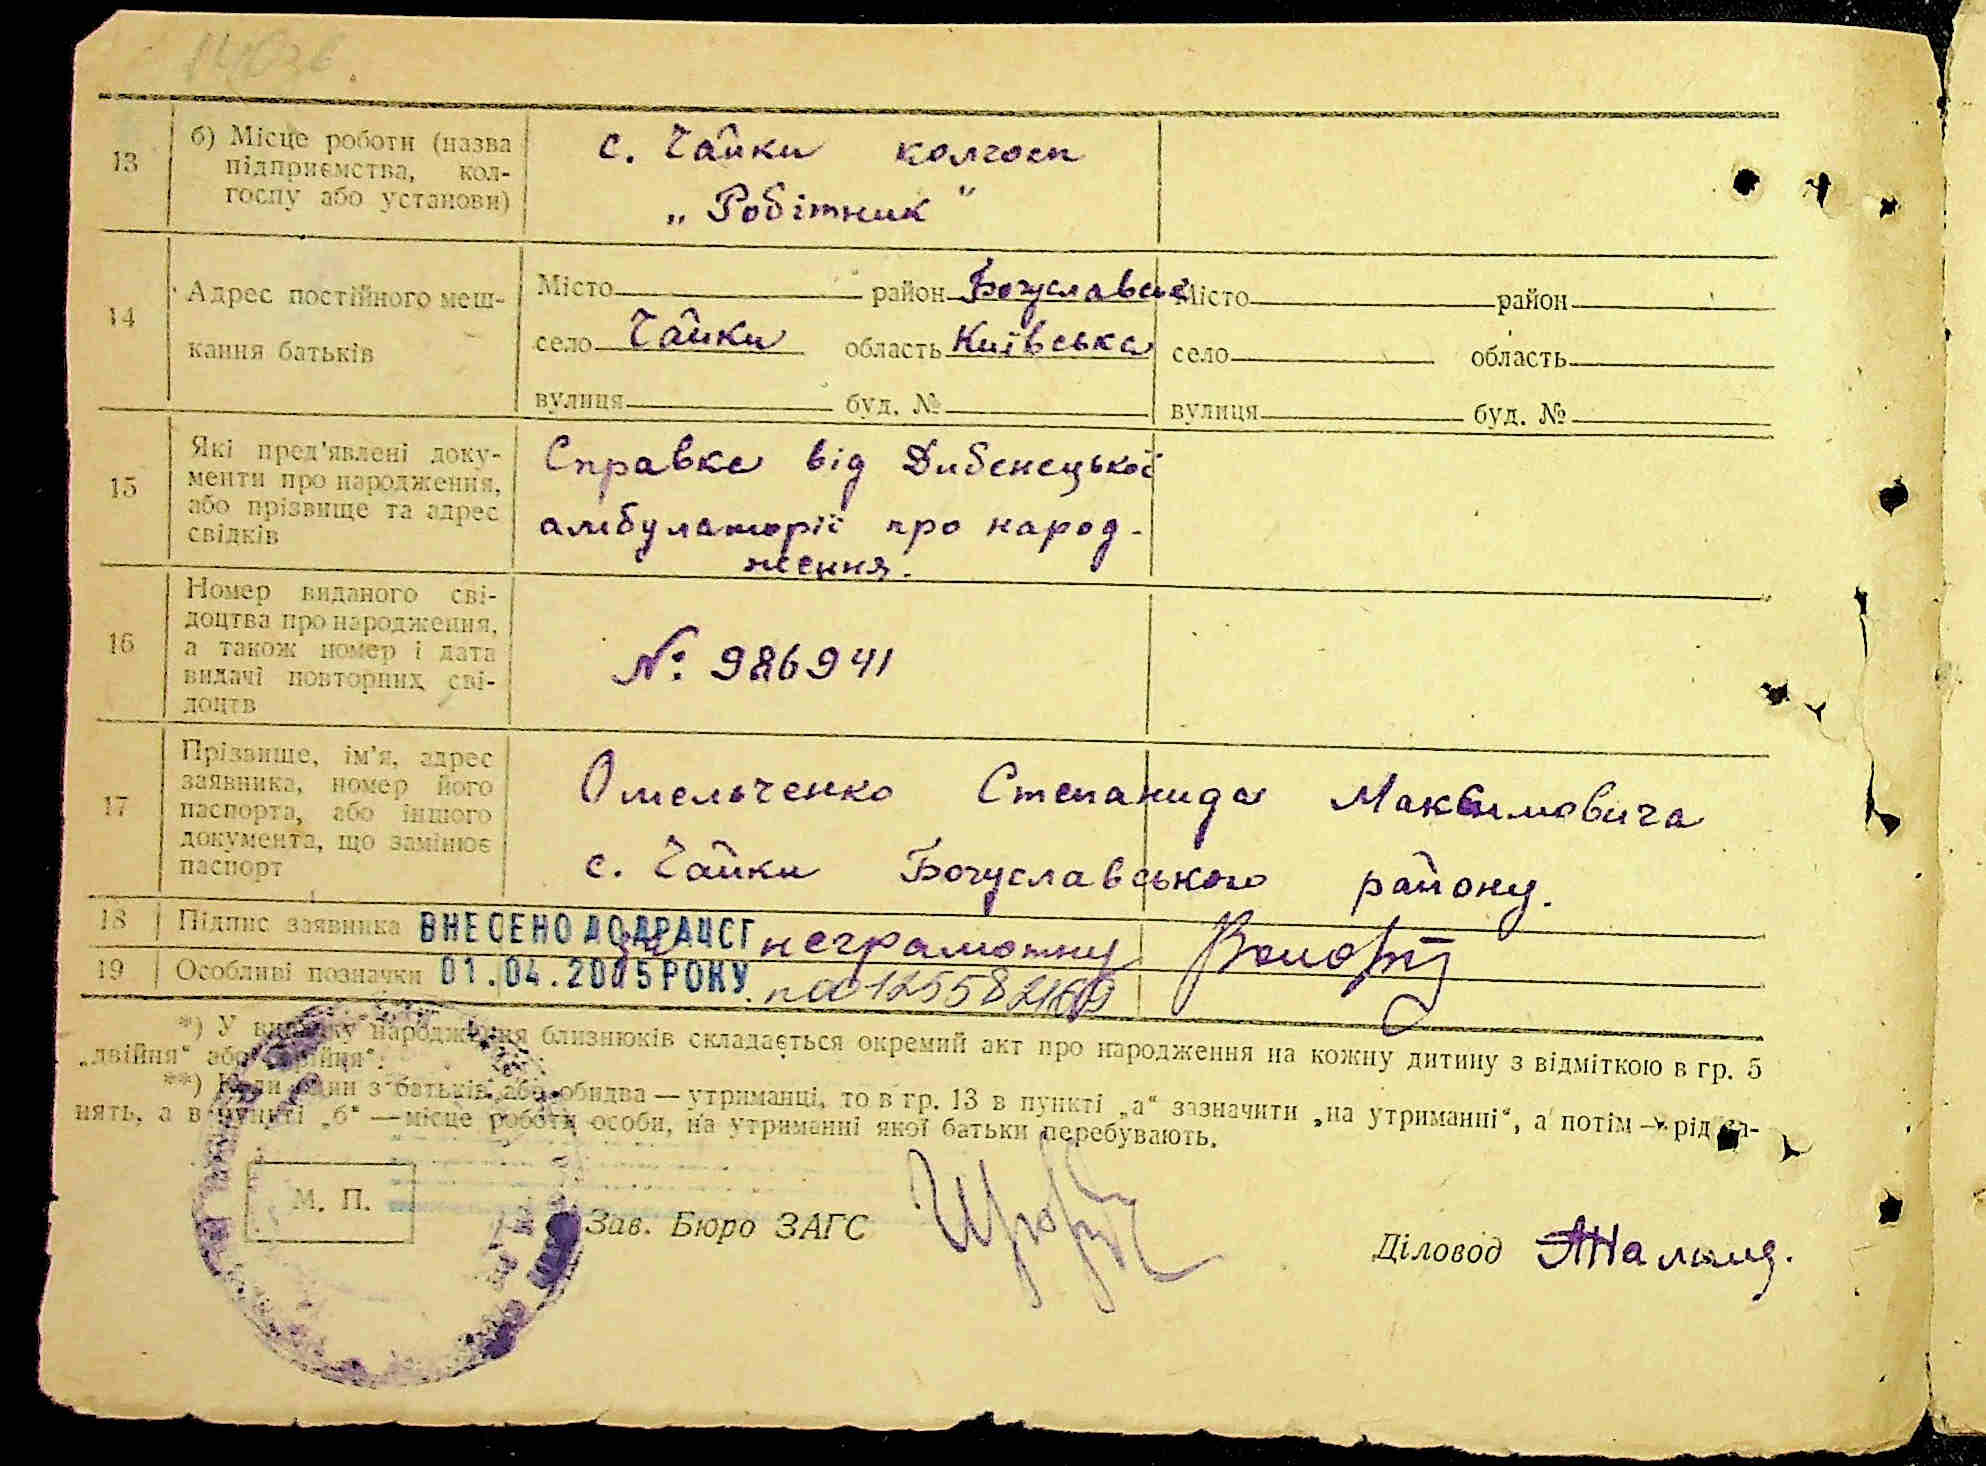 13
б) Місце роботи (назва
підприємства, кол-
госпу або установи)
с. Чайки колгосп
„Робітник"
14
Адрес постійного меш-
кання батьків
Місто район Богуславськ Місто район
село Чайки область Київська село область
вулиця буд. № вулиця буд. №
15
Які пред'явлені доку-
менти про народження,
або прізвище та адрес
свідків
Справка від Дибенецької
амбулаторії про народ-
ження.
16
Номер виданого сві-
доцтва про народження,
а також номер і дата
видачі повторних сві-
доцтв
№: 986941
17
Прізвище, ім'я, адрес
заявника, номер його
паспорта, або іншого
документа, що замінює
паспорт
Омельченко Степанида Максимовича
с. Чайки Богуславського району.
18 Підпис заявника ВНЕСЕНО ДО ДРАЦСГ за неграмотну
19 Особливі позначки 01.04.2005 РОКУ
*) У випадку народження близнюків складається окремий акт про народження на кожну дитину з відміткою в гр. 5
„двійня" або „трійня".
**) Коли один з батьків або обидва — утриманці, то в гр. 13 в пункті „а" зазначити „на утриманні", а потім — рід за-
нять, а в пункті „б" — місце роботи особи, на утриманні якої батьки перебувають.
М. П.
Зав. Бюро ЗАГС
Діловод